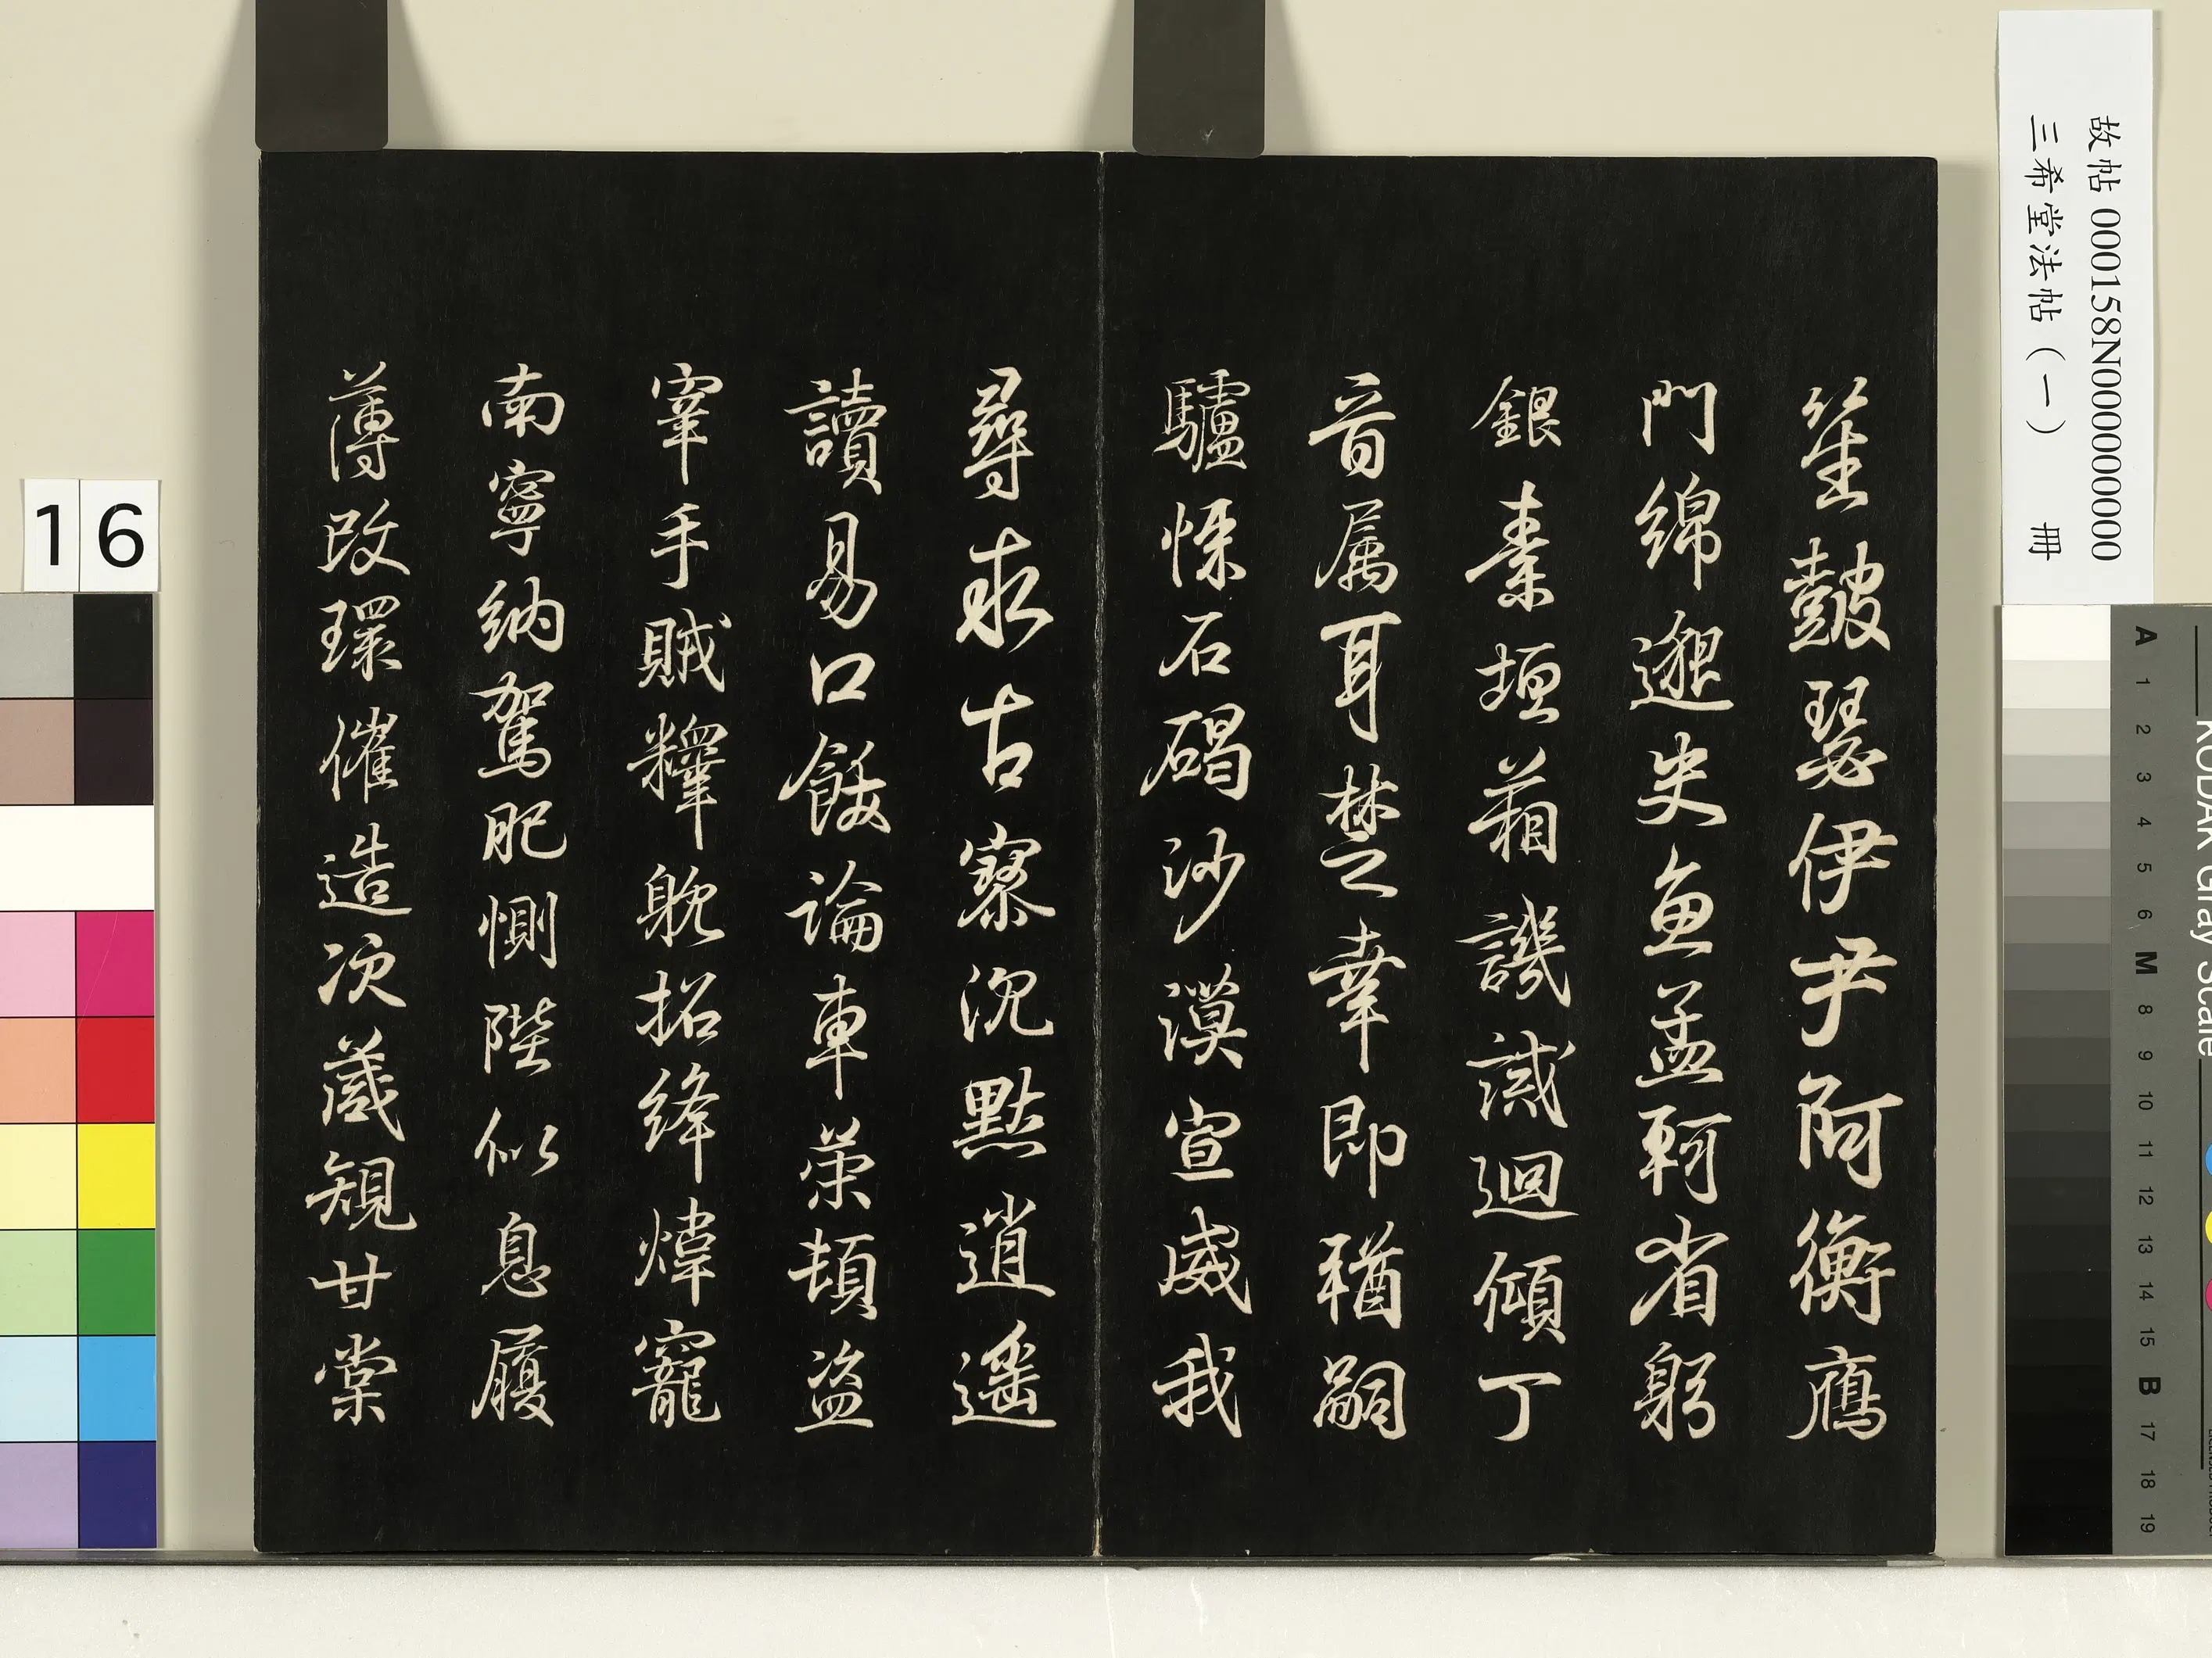 故帖 000158N000000000
三希堂法帖（一） 冊
笙鼓瑟伊尹阿衡鴈
門綿邈史魚孟軻省躬
銀素垣葙譏誡迴傾丁
音属耳幸即猶嗣
驢悚石碣沙漠宣威我
尋求古察沉默逍遥
讀易口飫論車荣頓盗
宰手賊釋躭招絳煒寵
南寧納駕肥惻陛似息履
薄改環催造次蔵規甘棠
16
KODAK Gray Scale
A 1 2 3 4 5 6 M 8 9 10 11 12 13 14 15 B 17 18 19